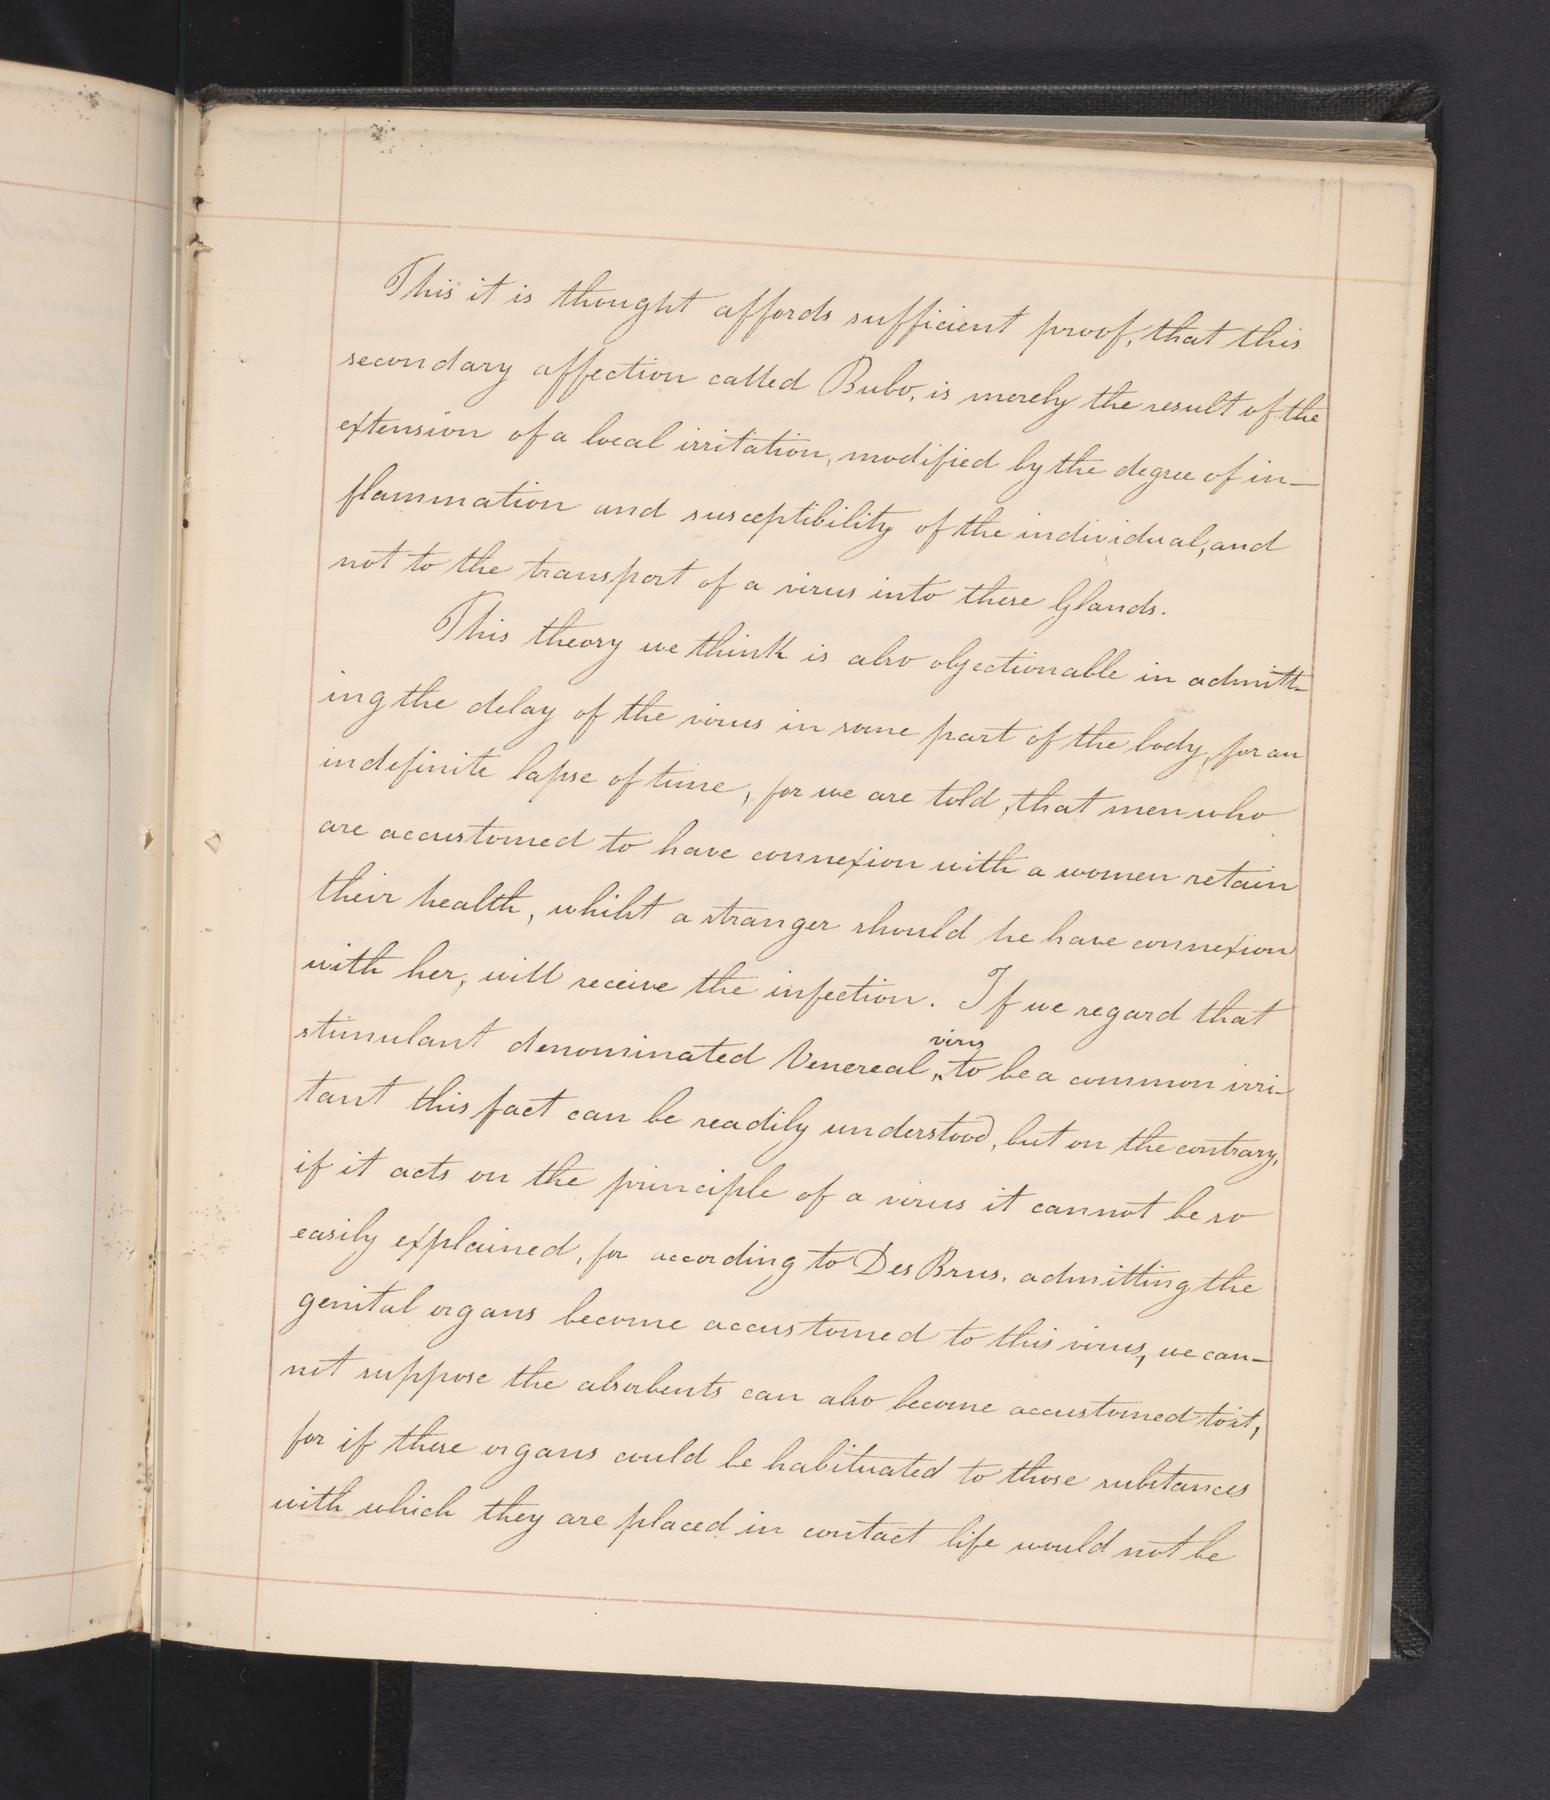 This it is thought affords sufficient proof, that this
secondary affection called Bubo, is merely the result of the
extension of a local irritation, modified by the degree of in-
flammation and susceptibility of the individual, and
not to the transport of a virus into these Glands.
This theory we think is also objectionable in admitt-
ing the delay of the virus in some part of the body, for an
indefinite lapse of time, for we are told, that men who
are accustomed to have connexion with a women retain
their health, whilst a stranger should he have connexion
with her, will receive the infection. If we regard that
stimulant denominated Venereal, virus to be a common irri-
tant this fact can be readily understood, but on the contrary,
if it acts on the principle of a virus it cannot be so
easily explained, for according to Des Brus. admitting the
genital organs become accustomed to this virus, we can-
not suppose the absorbents can also become accustomed to it,
for if these organs could be habituated to those substances
with which they are placed in contact life would not be